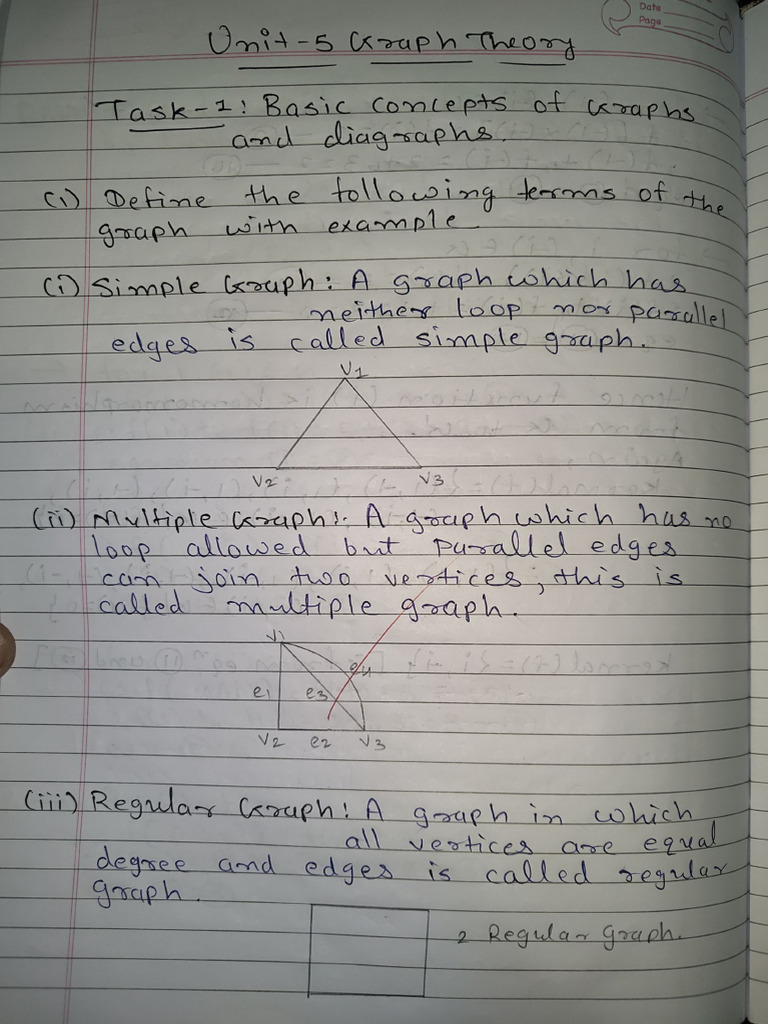 Date
Page
Unit-5 Graph Theory
Task-1: Basic concepts of Graphs
and diagraphs.
(1) Define the following terms of the
graph with example
(i) Simple Graph: A graph which has
neither loop nor parallel
edges is called simple graph.
V1
V2 V3
(ii) Multiple Graph:. A graph which has no
loop allowed but parallel edges
can join two vertices, this is
called multiple graph.
V1
e4
e1 e3
V2 e2 V3
(iii) Regular Graph: A graph in which
all vertices are equal
degree and edges is called regular
graph.
2 Regular Graph.